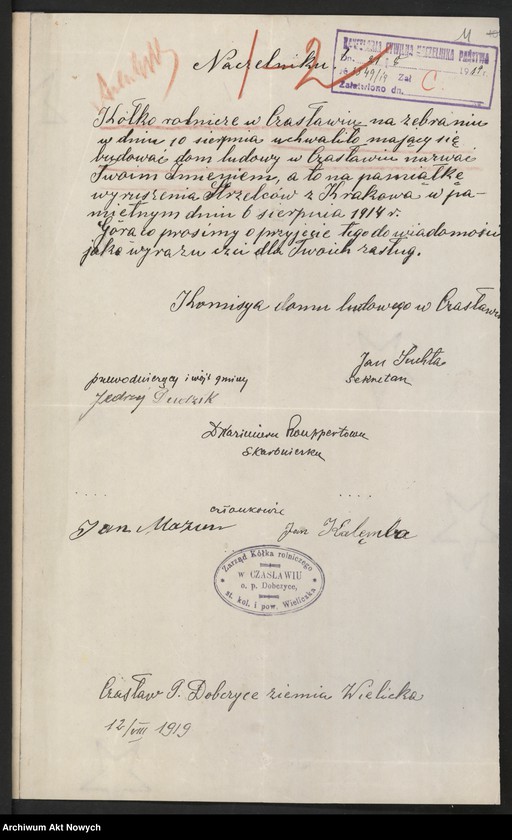 KANCELARJA CYWILNA NACZELNIKA PAŃSTWA
C.
Załatwiono dn.
1 2
Naczelniku!
Kółko rolnicze w Czasławiu na zebraniu
w dniu 10 sierpnia uchwaliło mający się
budować dom ludowy w Czasławiu nazwać
Twoim Imieniem, a to na pamiątkę
wyruszenia Strzelców z Krakowa w pa-
miętnym dniu 6 sierpnia 1914 r.
Gorąco prosimy o przyjęcie tego do wiadomości
jako wyrazu czci dla Twoich zasług.
Komisya domu ludowego w Czasławiu
Jan Suchta
sekretarz
przewodniczący i wójt gminy
Jędrzej Dudzik
Skarbnierka
członkowie
Jan Mazur
Jan Kalemba
Zarząd Kółka rolniczego
w CZASŁAWIU
o. p. Dobczyce,
st. kol. i pow. Wieliczka
Czasław P. Dobczyce ziemia Wielicka
12/VIII 1919
Archiwum Akt Nowych